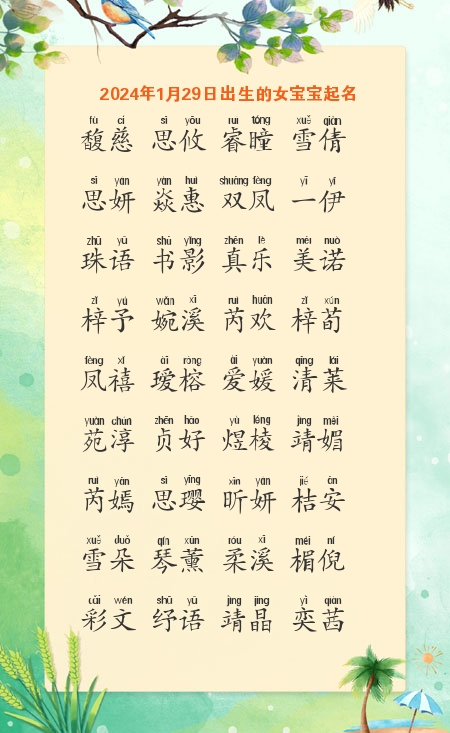 2024年1月29日出生的女宝宝起名
fù cí sī yōu ruì tóng xuě qiàn
馥慈 思攸 睿曈 雪倩
sī yán yàn huì shuāng fèng yī yī
思妍 焱惠 双凤 一伊
zhū yǔ shū yǐng zhēn lè měi nuò
珠语 书影 真乐 美诺
zǐ yú wǎn xī ruì huān zǐ xún
梓予 婉溪 芮欢 梓荀
fèng xǐ ài róng ài yuàn qīng lái
凤禧 瑷榕 爱媛 清莱
yuàn chún zhēn hǎo yù léng jìng mèi
苑淳 贞好 煜棱 靖媚
ruì yān sī yīng xīn yán jié ān
芮嫣 思璎 昕妍 桔安
xuě duǒ qín xūn róu xī méi ní
雪朵 琴薰 柔溪 楣倪
cǎi wén shū yǔ jìng jīng yì qiàn
彩文 纾语 靖晶 奕茜